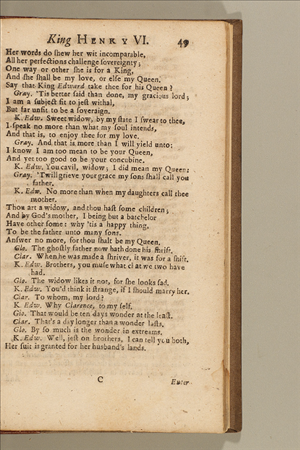 King HENRY VI. 49
Her words do shew her wit incomparable,
All her perfections challenge sovereignty;
One way or other she is for a King,
And she shall be my love, or else my Queen.
Say that King Edward take thee for his Queen?
Gray. 'Tis better said than done, my gracious lord;
I am a subject fit to jest withal,
But far unfit to be a soveraign.
K. Edw. Sweet widow, by my state I swear to thee,
I speak no more than what my soul intends,
And that is, to enjoy thee for my love.
Gray. And that is more than I will yield unto:
I know I am too mean to be your Queen,
And yet too good to be your concubine.
K. Edw. You cavil, widow; I did mean my Queen:
Gray. 'Twill grieve your grace my sons shall call you
father.
K. Edw. No more than when my daughters call thee
mother.
Thou art a widow, and thou hast some children;
And by God's mother, I being but a batchelor
Have other some: why 'tis a happy thing,
To be the father unto many sons.
Answer no more, for thou shalt be my Queen.
Glo. The ghostly father now hath done his shrift,
Clar. When he was made a shriver, it was for a shift.
K. Edw. Brothers, you muse what chat we two have
had.
Glo. The widow likes it not, for she looks sad.
K. Edw. You'd think it strange, if I should marry her.
Clar. To whom, my lord?
K. Edw. Why Clarence, to my self.
Glo. That would be ten days wonder at the least.
Clar. That's a day longer than a wonder lasts.
Glo. By so much is the wonder in extreams.
K. Edw. Well, jest on brothers, I can tell you both,
Her suit is granted for her husband's lands.
C Enter